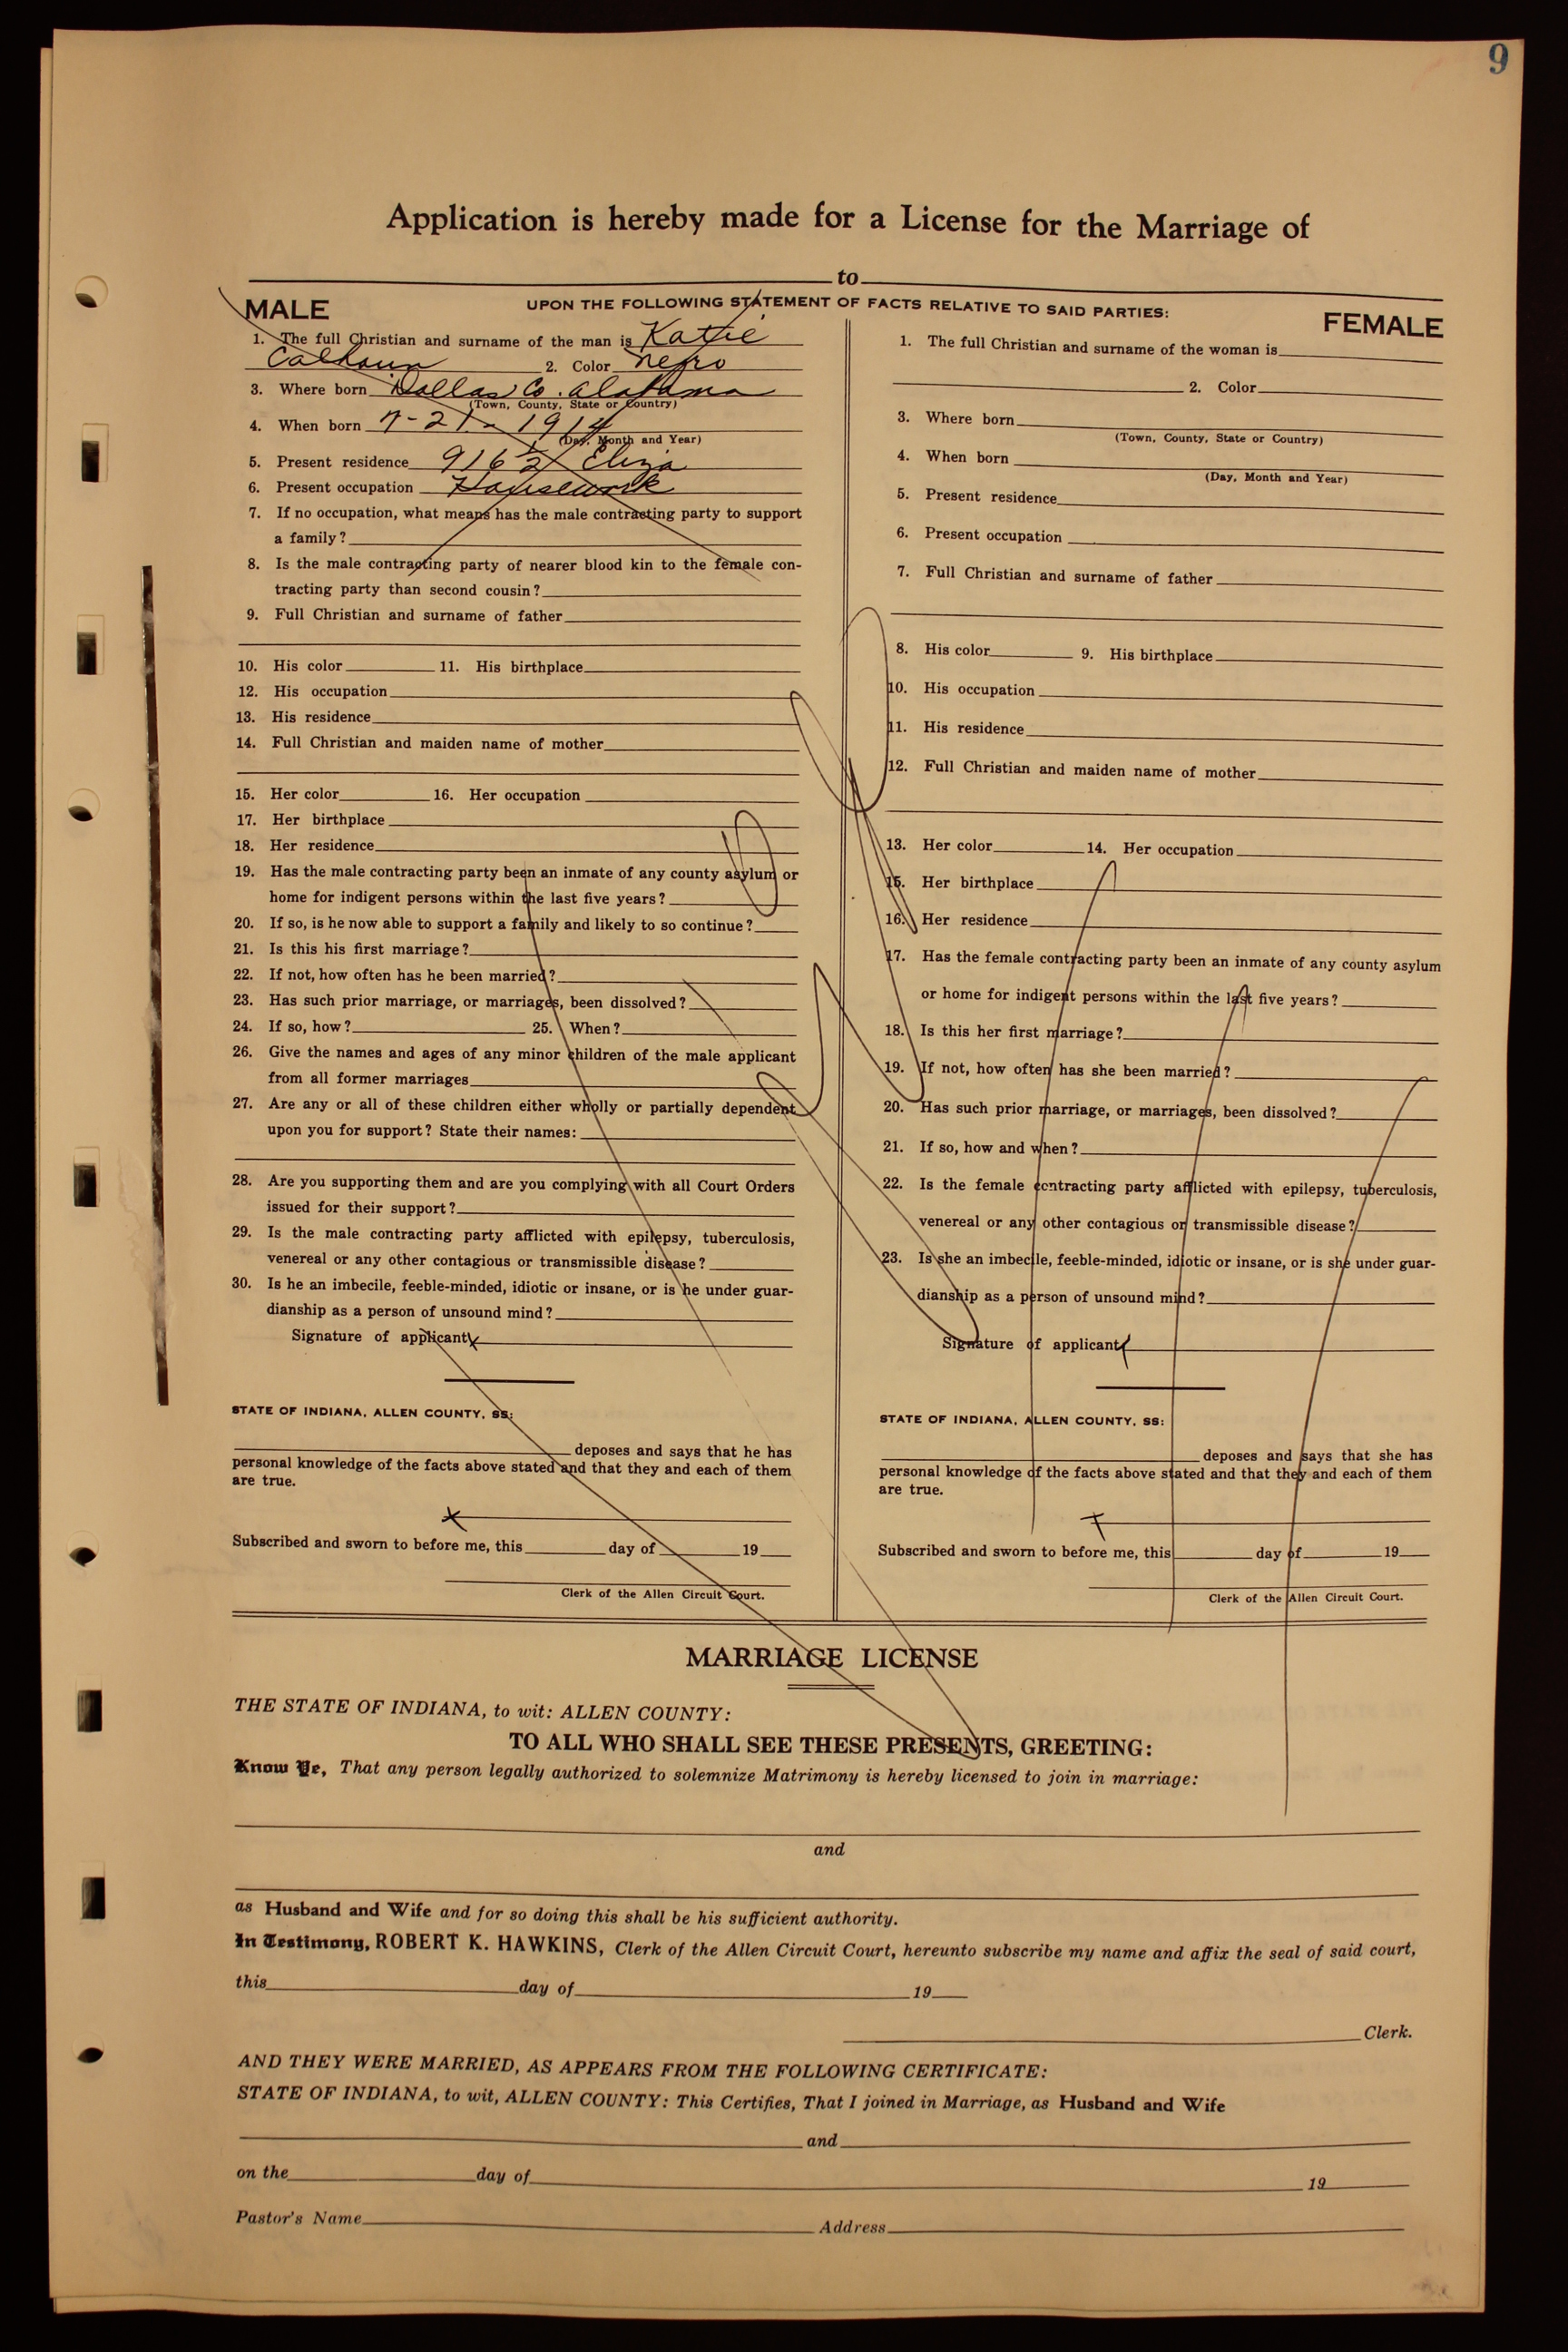 9
Application is hereby made for a License for the Marriage of
to
UPON THE FOLLOWING STATEMENT OF FACTS RELATIVE TO SAID PARTIES:
MALE
1. The full Christian and surname of the man is Katie
Calhoun 2. Color negro
3. Where born Dallas Co. Alabama
(Town, County, State or Country)
4. When born 7-21-1914
(Day, Month and Year)
5. Present residence 916 1/2 Eliza
6. Present occupation Housework
7. If no occupation, what means has the male contracting party to support
a family?
8. Is the male contracting party of nearer blood kin to the female con-
tracting party than second cousin?
9. Full Christian and surname of father
10. His color 11. His birthplace
12. His occupation
13. His residence
14. Full Christian and maiden name of mother
15. Her color 16. Her occupation
17. Her birthplace
18. Her residence
19. Has the male contracting party been an inmate of any county asylum or
home for indigent persons within the last five years?
20. If so, is he now able to support a family and likely to so continue?
21. Is this his first marriage?
22. If not, how often has he been married?
23. Has such prior marriage, or marriages, been dissolved?
24. If so, how? 25. When?
26. Give the names and ages of any minor children of the male applicant
from all former marriages
27. Are any or all of these children either wholly or partially dependent
upon you for support? State their names:
28. Are you supporting them and are you complying with all Court Orders
issued for their support?
29. Is the male contracting party afflicted with epilepsy, tuberculosis,
venereal or any other contagious or transmissible disease?
30. Is he an imbecile, feeble-minded, idiotic or insane, or is he under guar-
dianship as a person of unsound mind?
Signature of applicant x
STATE OF INDIANA, ALLEN COUNTY, SS:
deposes and says that he has
personal knowledge of the facts above stated and that they and each of them
are true.
x
Subscribed and sworn to before me, this day of 19
Clerk of the Allen Circuit Court.
FEMALE
1. The full Christian and surname of the woman is
2. Color
3. Where born
(Town, County, State or Country)
4. When born
(Day, Month and Year)
5. Present residence
6. Present occupation
7. Full Christian and surname of father
8. His color 9. His birthplace
10. His occupation
11. His residence
12. Full Christian and maiden name of mother
13. Her color 14. Her occupation
15. Her birthplace
16. Her residence
17. Has the female contracting party been an inmate of any county asylum
or home for indigent persons within the last five years?
18. Is this her first marriage?
19. If not, how often has she been married?
20. Has such prior marriage, or marriages, been dissolved?
21. If so, how and when?
22. Is the female contracting party afflicted with epilepsy, tuberculosis,
venereal or any other contagious or transmissible disease?
23. Is she an imbecile, feeble-minded, idiotic or insane, or is she under guar-
dianship as a person of unsound mind?
Signature of applicant x
STATE OF INDIANA, ALLEN COUNTY, SS:
deposes and says that she has
personal knowledge of the facts above stated and that they and each of them
are true.
x
Subscribed and sworn to before me, this day of 19
Clerk of the Allen Circuit Court.
MARRIAGE LICENSE
THE STATE OF INDIANA, to wit: ALLEN COUNTY:
TO ALL WHO SHALL SEE THESE PRESENTS, GREETING:
Know Ye, That any person legally authorized to solemnize Matrimony is hereby licensed to join in marriage:
and
as Husband and Wife and for so doing this shall be his sufficient authority.
In Testimony, ROBERT K. HAWKINS, Clerk of the Allen Circuit Court, hereunto subscribe my name and affix the seal of said court,
this day of 19
Clerk.
AND THEY WERE MARRIED, AS APPEARS FROM THE FOLLOWING CERTIFICATE:
STATE OF INDIANA, to wit, ALLEN COUNTY: This Certifies, That I joined in Marriage, as Husband and Wife
and
on the day of 19
Pastor's Name Address